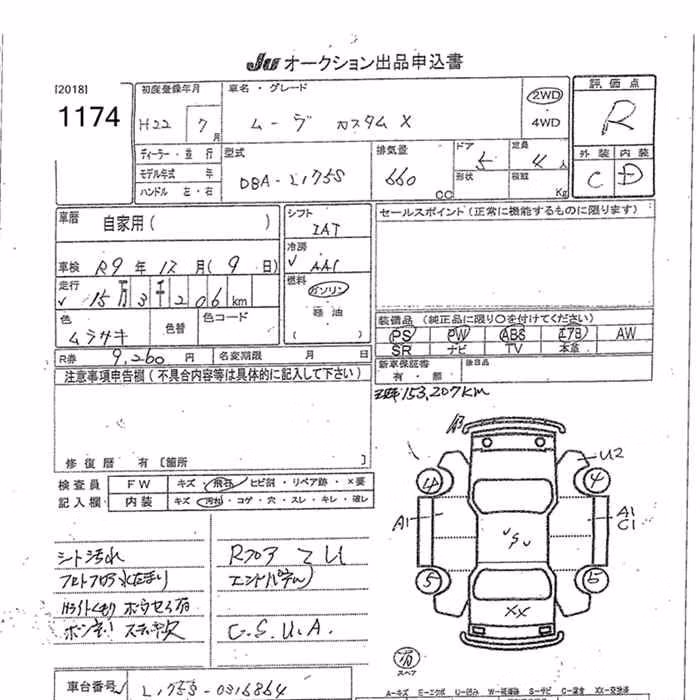 JU オークション出品申込書
[2018]
1174
初度登録年月
車名・グレード
評価点
H22 7月
ムーヴ カスタム X
2WD
4WD
R
ディーラー・並行
型式
排気量
ドア
定員
外装 内装
モデル年式 年
DBA-L175S
660 CC
5
4人
C D
ハンドル 左・右
形状
積載 Kg
車歴 自家用( )
シフト
セールスポイント(正常に機能するものに限ります)
IAT
車検 R9年12月(9日)
冷房
AAC
走行
15万3千206km
燃料
ガソリン
軽油
( )
色
ムラサキ
色替
色コード
装備品 (純正品に限り○を付けてください)
PS PW ABS エアB AW
SR ナビ TV 本革
R券 9,260円
名変期限 月 日
新車保証書
有・無
後日品
注意事項申告欄(不具合内容等は具体的に記入して下さい)
153,207km
修復歴 有[箇所 ]
検査員
記入欄
FW キズ・飛石・ヒビ割・リペア跡・×要
内装 キズ・汚れ・コゲ・穴・スレ・キレ・破レ
A3
U2
4
4
A1
A1
C1
5
5
XX
シート汚れ
Rフロア
U
エンドパネル
C.S.U.A.
スペア
車台番号 L175S-0316864
A-キズ E-エクボ U-凹み W-補修跡 S-サビ C-腐食 XX-交換済